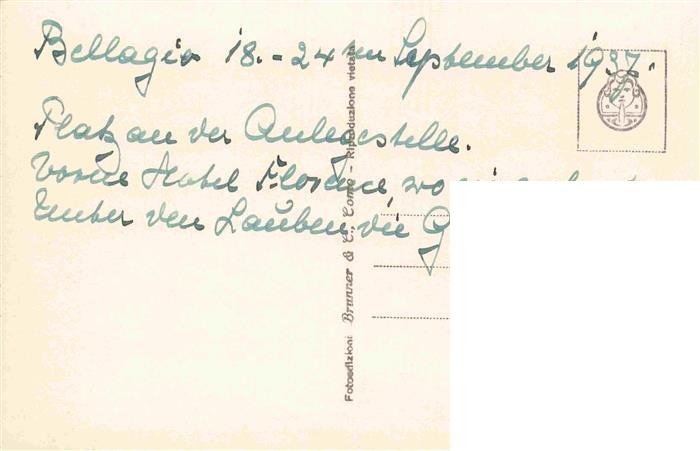 Bellagio 18. - 24ten September 1937.
Platz an der Anlegestelle.
Vorne Hotel Florence, wo
Unter den Lauben die G
Fotoedizioni Brunner & C., Como - Riproduzione vietata